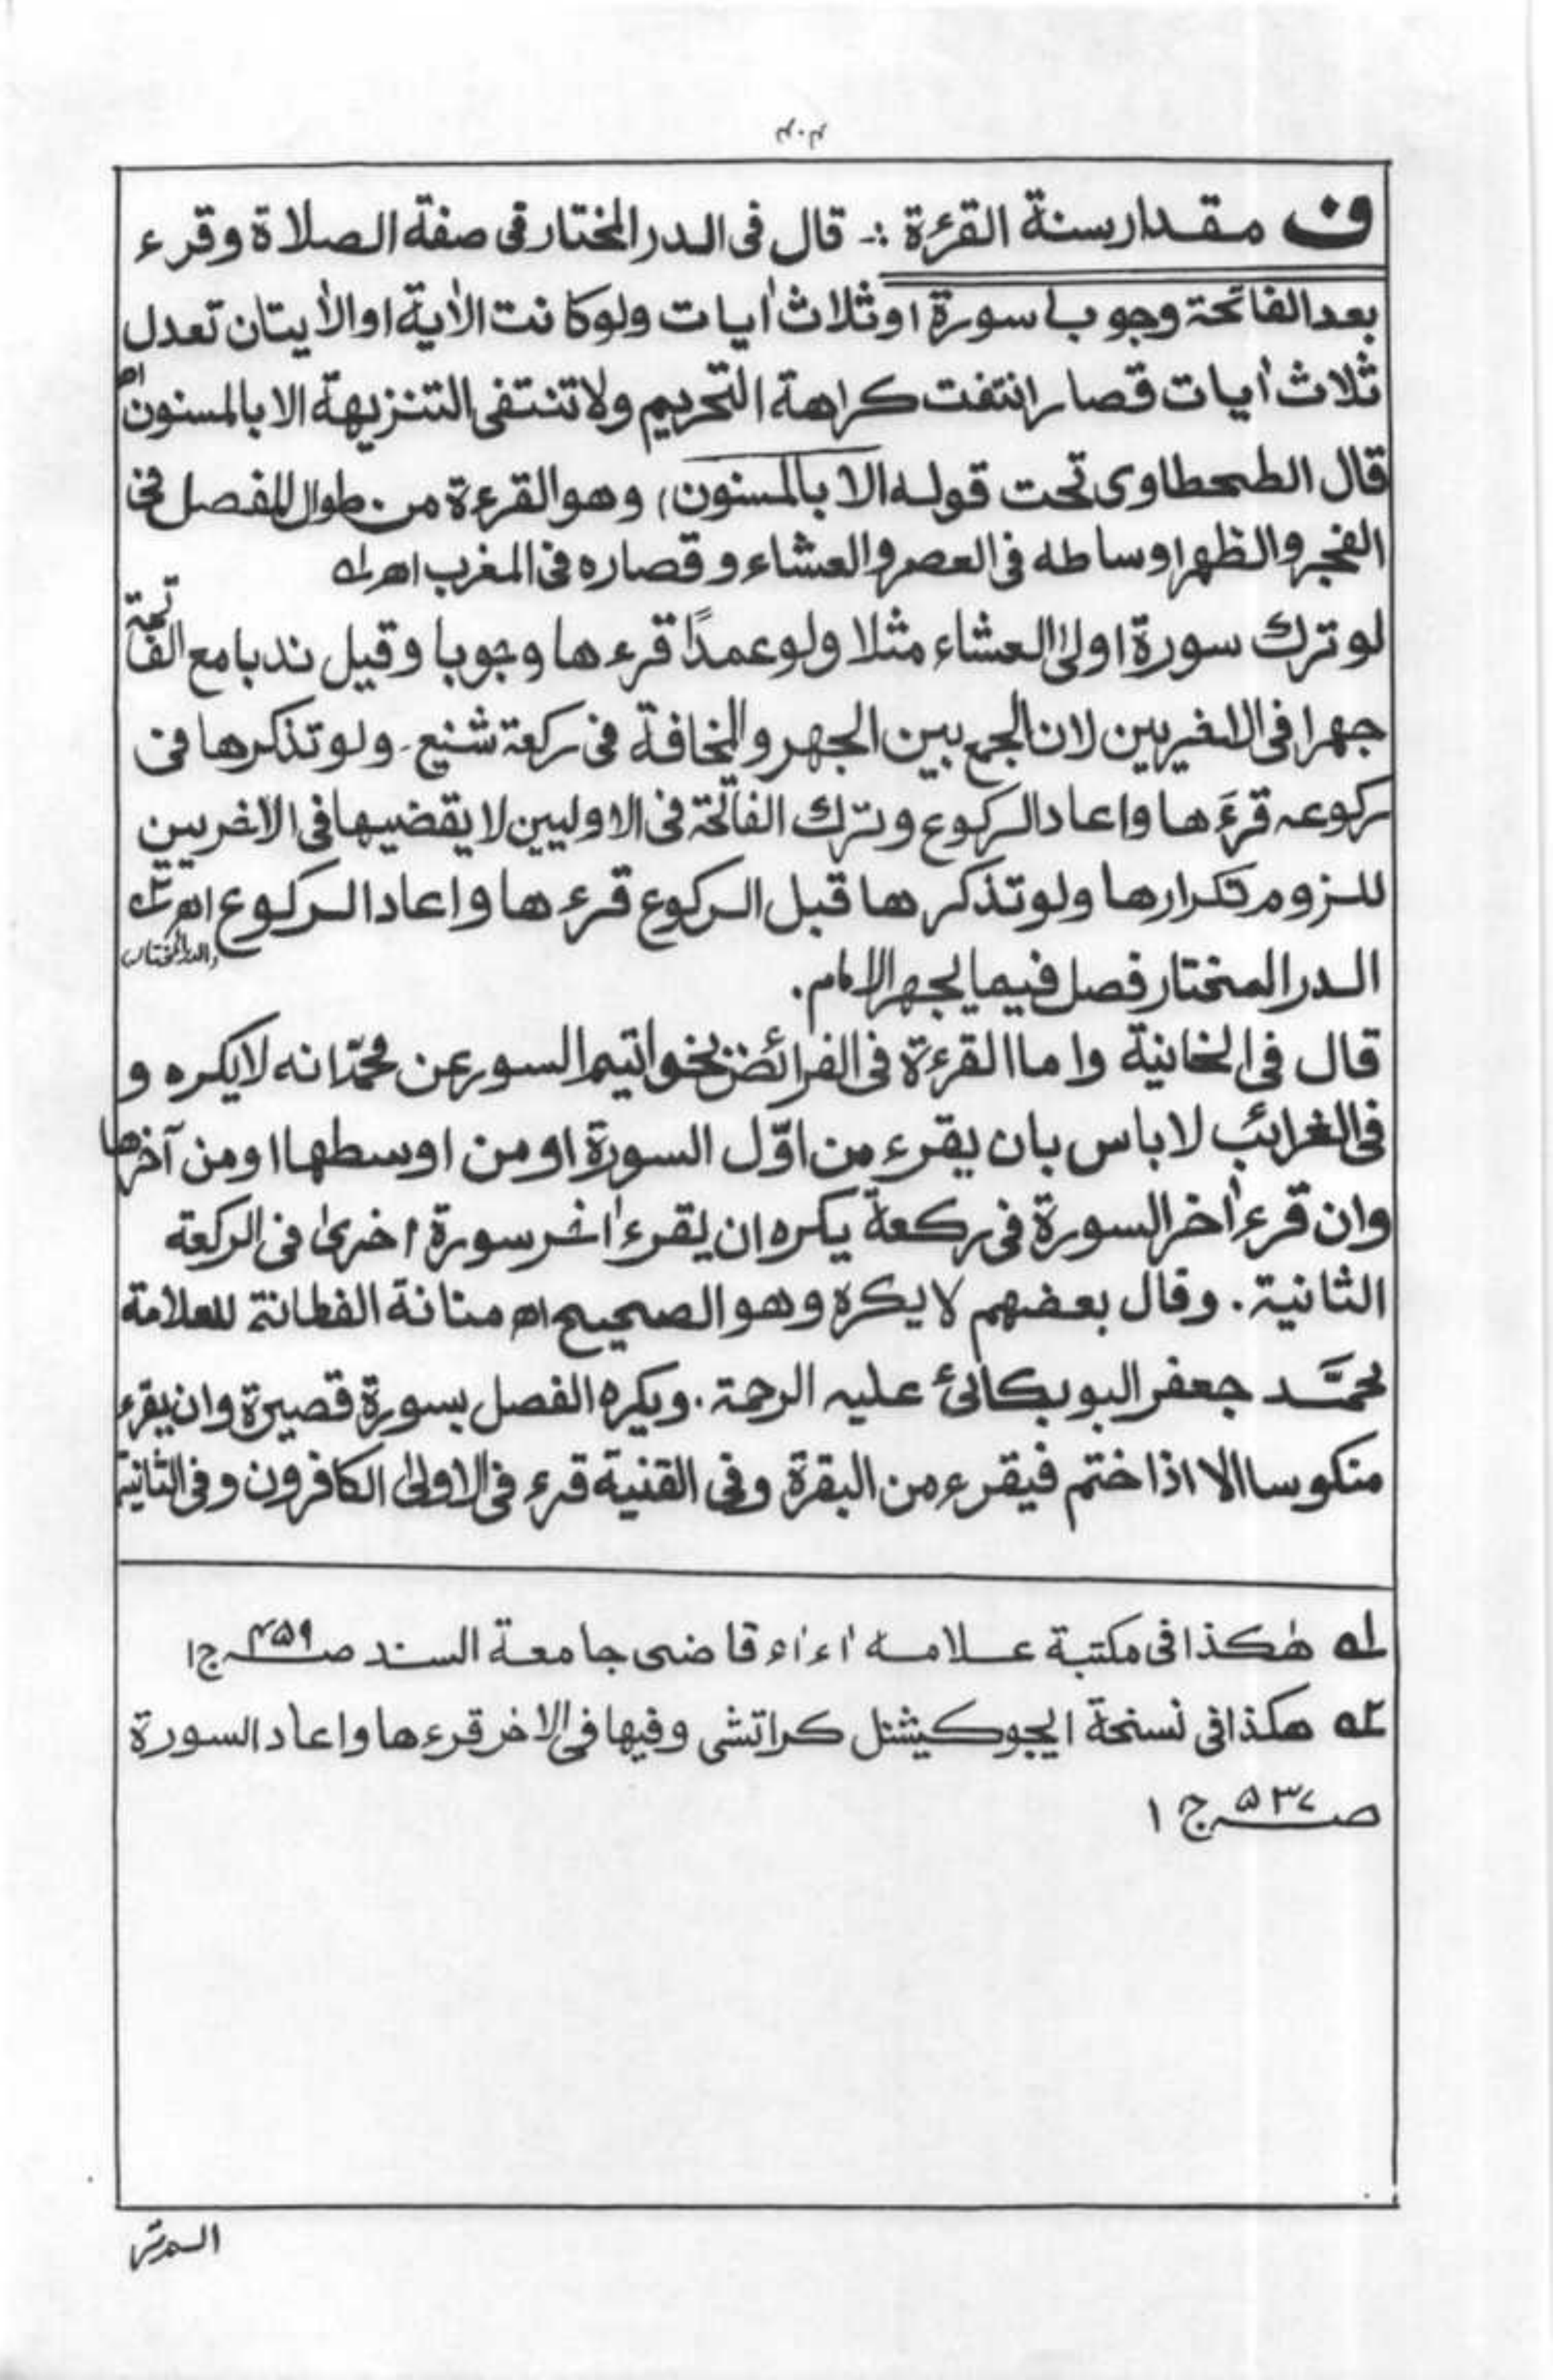 ۴۰۴
ف مقدار سنة القرءة :- قال فی الدر المختار فی صفة الصلاة وقرء
بعد الفاتحة وجوبا سورة او ثلاث اٰیات ولو کانت الاٰیة او الاٰیتان تعدل
ثلاث اٰیات قصار انتفت کراهة التحریم ولا تنتفی التنزیهة الا بالمسنون اھ
قال الطحطاوی تحت قوله الا بالمسنون) وهو القرءة من طوال المفصل فی
الفجر والظهر اوساطه فی العصر والعشاء وقصاره فی المغرب اھ لہ
لو ترك سورة اولیٰ العشاء مثلا ولو عمدًا قرءها وجوبا وقیل ندبا مع الفاتحة
جهرا فی الاخریین لان الجمع بین الجهر والمخافة فی رکعة شنیع۔ ولو تذکرها فی
رکوعہ قرءَها واعاد الرکوع وترك الفاتحة فی الاولیین لا یقضیها فی الاخریین
للزوم تکرارها ولو تذکرها قبل الرکوع قرءها واعاد الرکوع اھ ۲ہ
الدر المختار فصل فیما یجهر الامام. (الدر المختار)
قال فی الخانیة واما القرءة فی الفرائض بخواتیم السور عن محمّد انه لایکره و
فی الغرائب لا باس بان یقرء من اوّل السورة او من اوسطها او من آخرها
وان قرء اٰخر السورة فی رکعة یکره ان یقرء اٰخر سورة اخریٰ فی الرکعة
الثانیة. وقال بعضهم لا یکره وهو الصحیح اھ متانة الفطانة للعلامة
محمَّد جعفر البوبکانیٔ علیہ الرحمة. ویکره الفصل بسورة قصیرة وان یقرء
منکوسا الا اذا ختم فیقرء من البقرة وفی القنیة قرء فی الاولیٰ الکافرون وفی الثانیة
لہ هٰکذا فی مکتبة علامه اٰء اٰء قاضی جامعة السند صـ۴۵۹ ج۱
۲ہ هکذا فی نسخة ایجوکیشنل کراتشی وفیها فی الاخر قرءها واعاد السورة
صـ۵۳۷ ج ۱